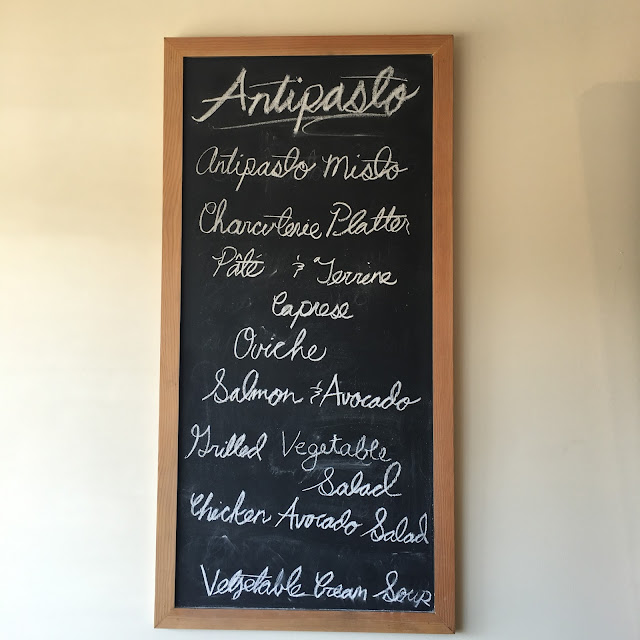 Antipasto
Antipasto Misto
Charcuterie Platter
Pâté & Terrine
Caprese
Oviche
Salmon & Avocado
Grilled Vegetable
Salad
Chicken Avocado Salad
Vegetable Cream Soup